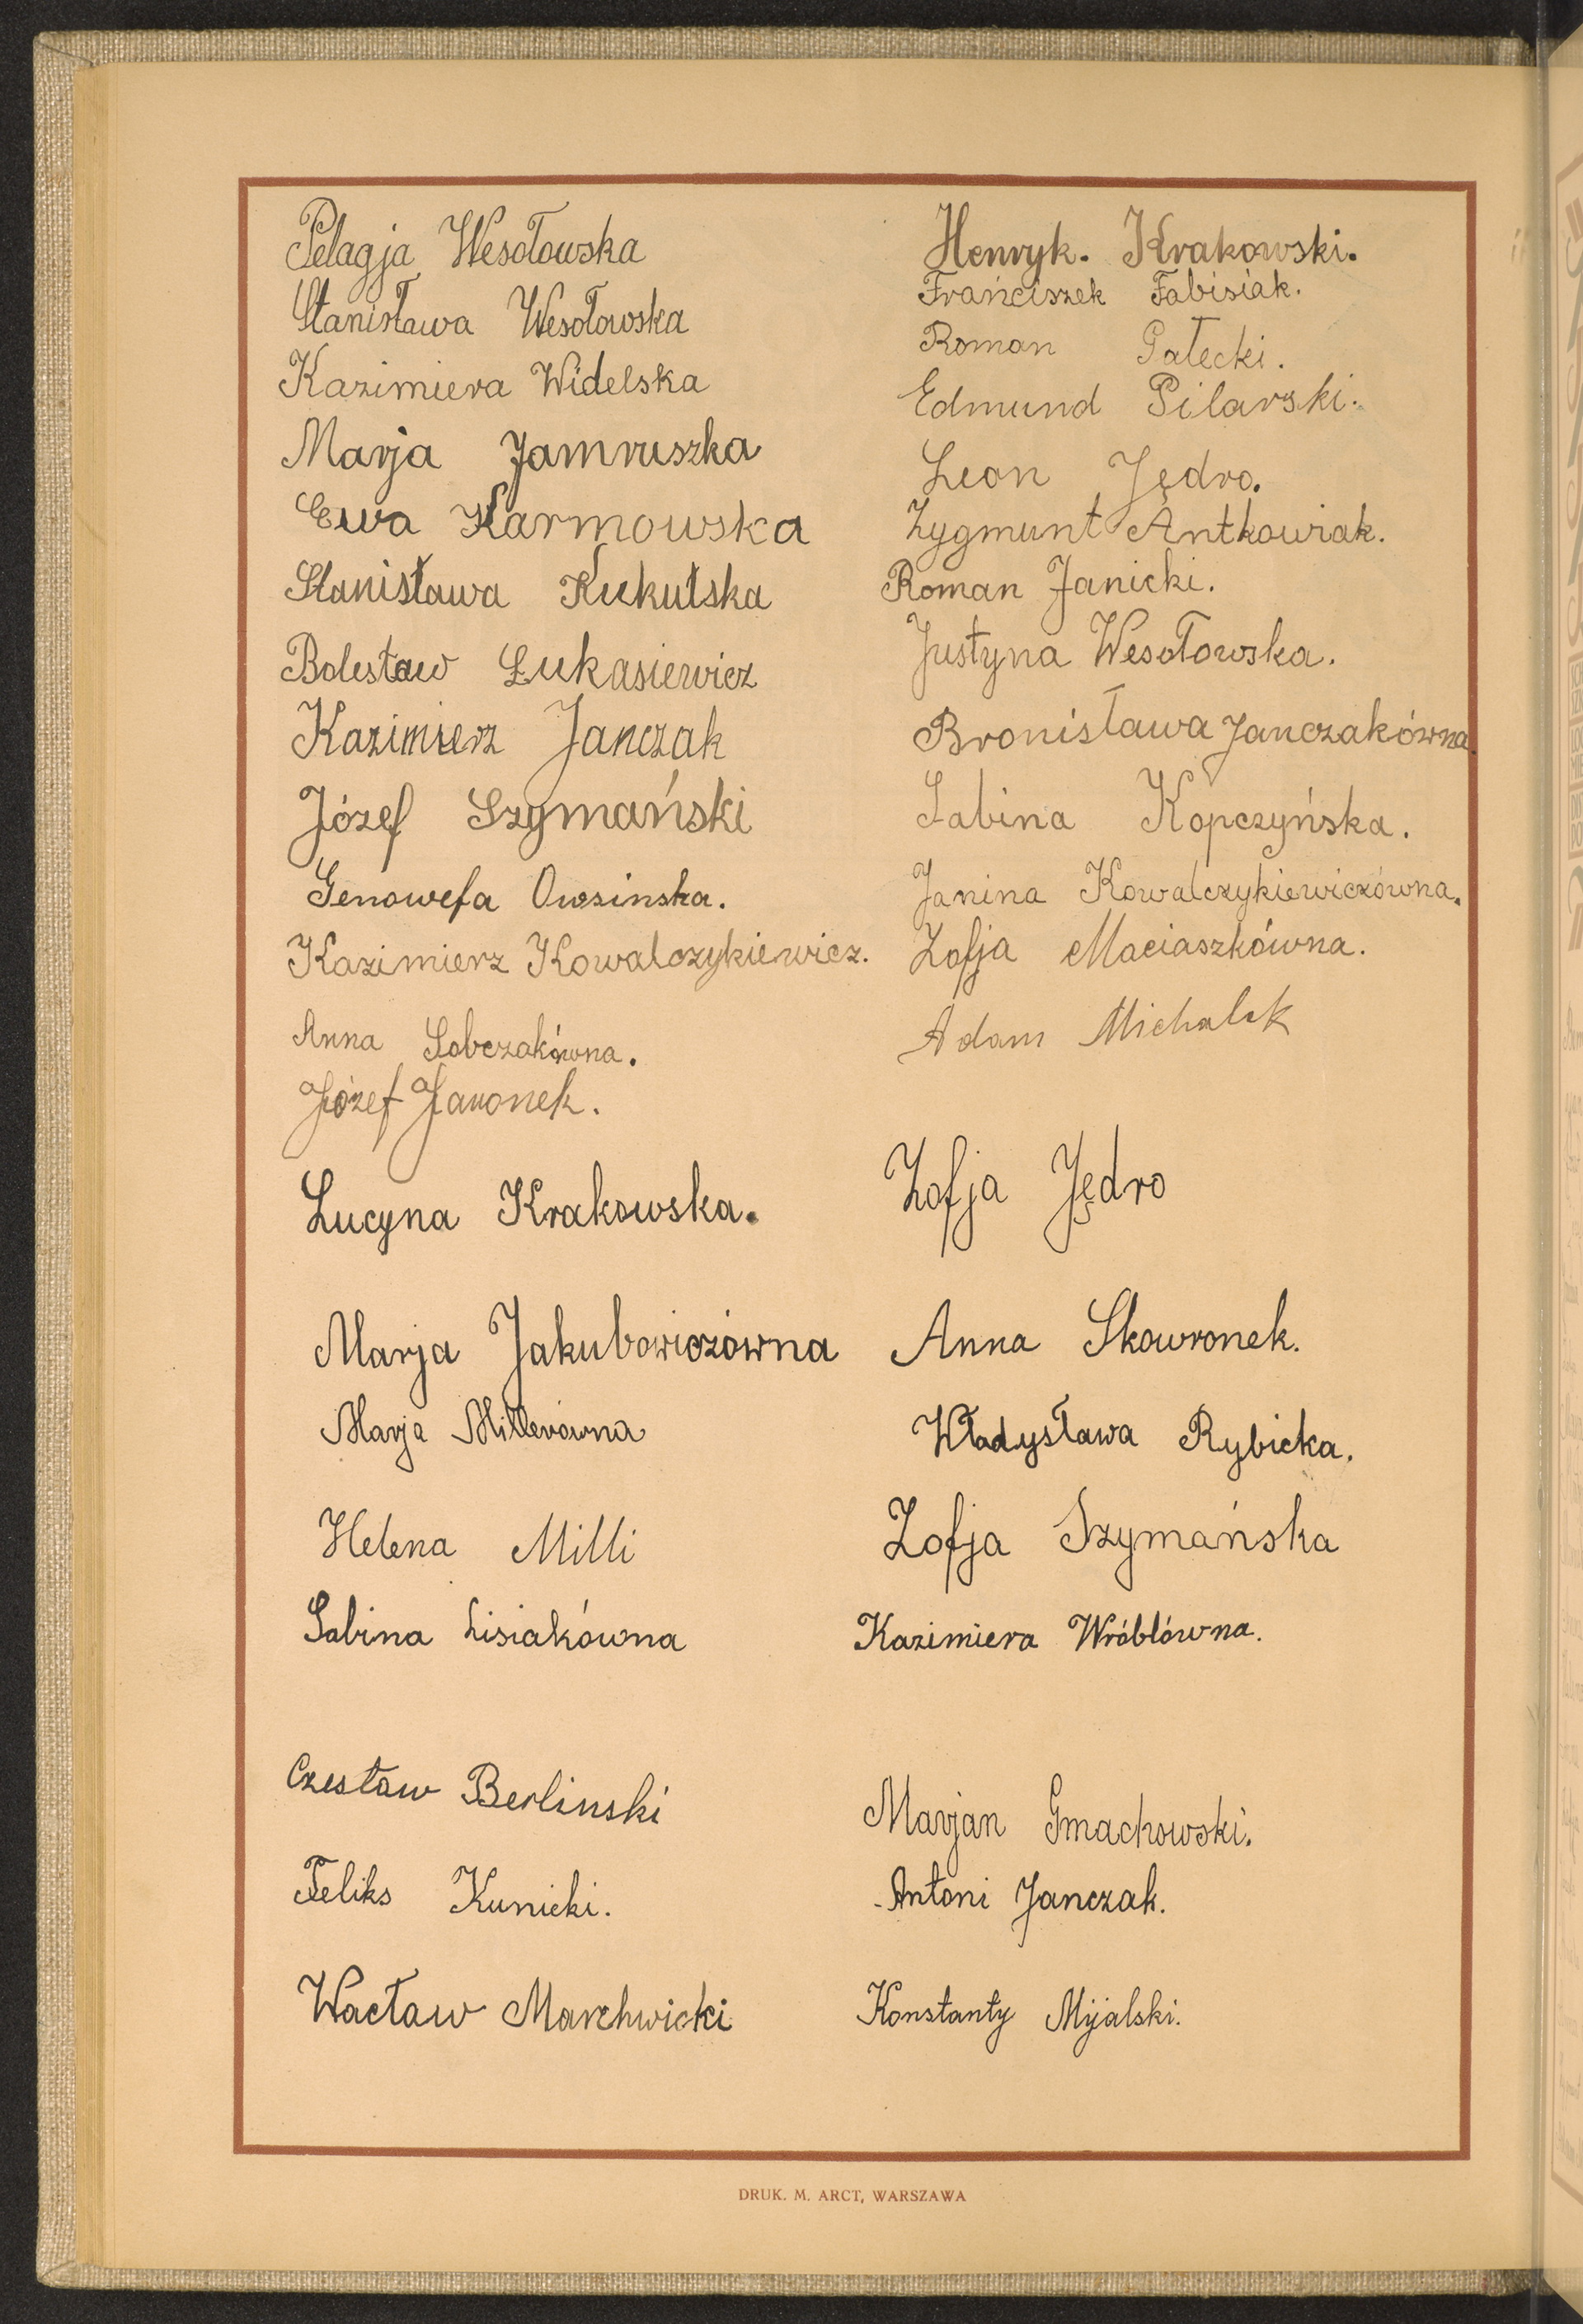 Pelagja Wesołowska
Stanisława Wesołowska
Kazimiera Widelska
Marja Jamruszka
Ewa Karmowska
Stanisława Kukulska
Bolesław Łukasiewicz
Kazimierz Janczak
Józef Szymański
Genowefa Owsinska.
Kazimierz Kowalczykiewicz.
Anna Sobczakówna.
Józef Jaronek.
Lucyna Krakowska.
Marja Jakubowiczówna
Marja Millerówna
Helena Milli
Sabina Lisiakówna
Czesław Berlinski
Feliks Kunicki.
Wacław Marchwicki
Henryk. Krakowski.
Franciszek Fabisiak.
Roman Gałecki.
Edmund Pilarski.
Leon Jędro.
Zygmunt Antkowiak.
Roman Janicki.
Justyna Wesołowska.
Bronisława Janczakówna.
Sabina Kopczyńska.
Janina Kowalczykiewiczówna.
Zofja Maciaszkówna.
Adam Michalak
Zofja Jędro
Anna Skowronek.
Władysława Rybicka.
Zofja Szymańska
Kazimiera Wróblówna.
Marjan Gmachowski.
Antoni Janczak.
Konstanty Mijalski.
DRUK. M. ARCT, WARSZAWA